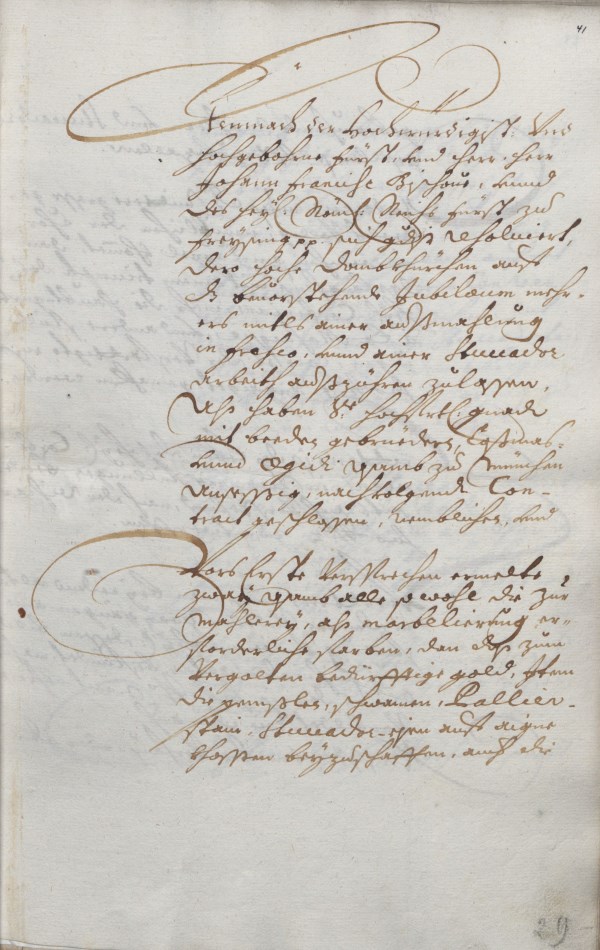 41
Demnach der Hochwürdigist: Und
Hochgebohrne Fürst, und Herr, Herr
Johann Francisc Bischove, unnd
des Heyl: Röm: Reichs Fürst zu
Freysing pp. sich gdist resolviert,
dero hoche Dombkhürchen auf
bevorstehende Jubilaeum mehr-
ers mitls ainer außmahlung
in fresco, unnd ainer Stuccador
arbeith außzühren zulassen,
Alß haben Sr. Hochfrtl: gnad
mit beeden gebrüedern, Coßmas-
unnd Egidi Asamb zu München
ansessig, nachvolgendt Con-
tract geschlossen, nemblichen, und
Vors Erste Versprechen ermelte
zway Asamb alle sowohl die zur
Mahlerey, alß marblierung er-
forderliche farben, dan daß zum
Vergolten bedürfftige gold, Item
die pemßlen, schwamen, Pallier-
stain, Stuccador-eisen auf aigne
khossten beyzuschaffen, auch die
29